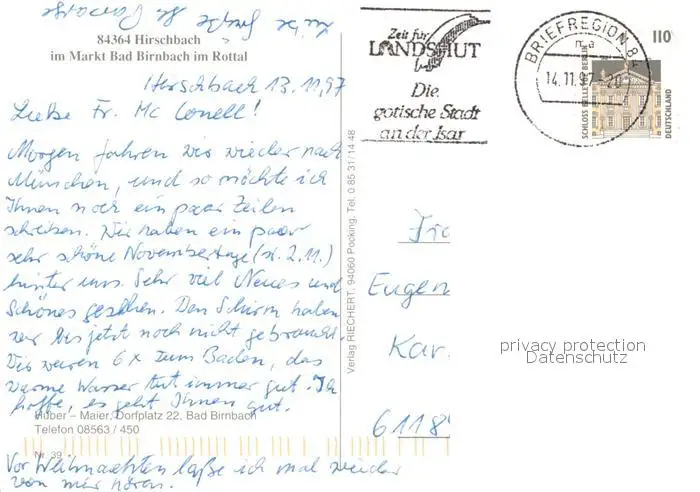 84364 Hirschbach
im Markt Bad Birnbach im Rottal
Hirschbach 13.11.97
Liebe Fr. Mc Conell!
Morgen fahren wir wieder nach
München, und so möchte ich
Ihnen noch ein paar Zeilen
schreiben. Wir haben ein paar
sehr schöne Novembertage
hinter uns. Sehr viel Neues und
Schönes gesehen. Den Schirm haben
wir bis jetzt noch nicht gebraucht.
Wir waren 6x zum Baden, das
warme Wasser tut immer gut. Ich
hoffe, es geht Ihnen gut.
Huber – Maier, Dorfplatz 22, Bad Birnbach
Telefon 08563 / 450
Nr. 39
Vor Weihnachten laße ich mal wieder
von mir hören.
Verlag RIECHERT, 94060 Pocking, Tel. 0 85 31/14 48
Zeit für
LANDSHUT
Die
gotische Stadt
an der Isar
BRIEFREGION 84
14.11.97-20
110
SCHLOSS BELLEVUE BERLIN
DEUTSCHLAND
Eugen
Kar.
6118
privacy protection
Datenschutz